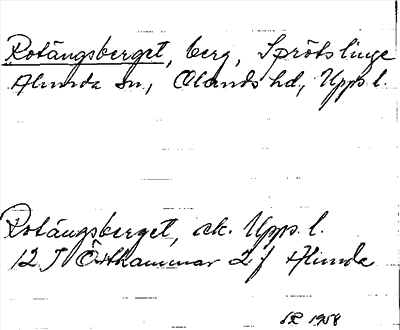 Rotängsberget, berg, Sprötslinge
Alunda sn, Olands hd, Upps. l.
Rotängsberget, ek. Upps. l.
12 I Östhammar 2 f Alunda
1958